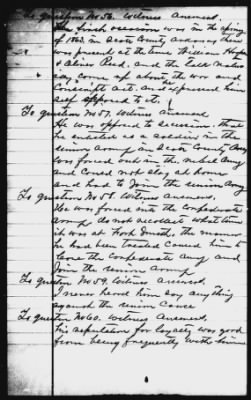 To question No 56. Witness Answered.
The first occasion was in the spring
of 1862 in Scott County Arkansas there
was present at the time William Hope
& Oliver Reed. and the Talk
say came up about the war and
Conscript Act. and expressed him
self opposed to it.
To question No 57. Witness Answered
He was opposed to secession. that
he enlisted as a soldier in the
union army in Scott County Ark
was forced out in the rebel Army
and Could not stay at home
and had to Join the union Army
To question No 58. Witness Answered.
He was forced into the confederate
Army, do not recollect what time
it was at Fort Smith, the manner
he had been treated Caused him to
leave the Confederate Army and
Join the union army
To question No 59. Witness Answered.
I never heard him say anything
against the union Cause
To question No 60. Witness Answered.
his reputation for loyalty was good
from being frequently with him